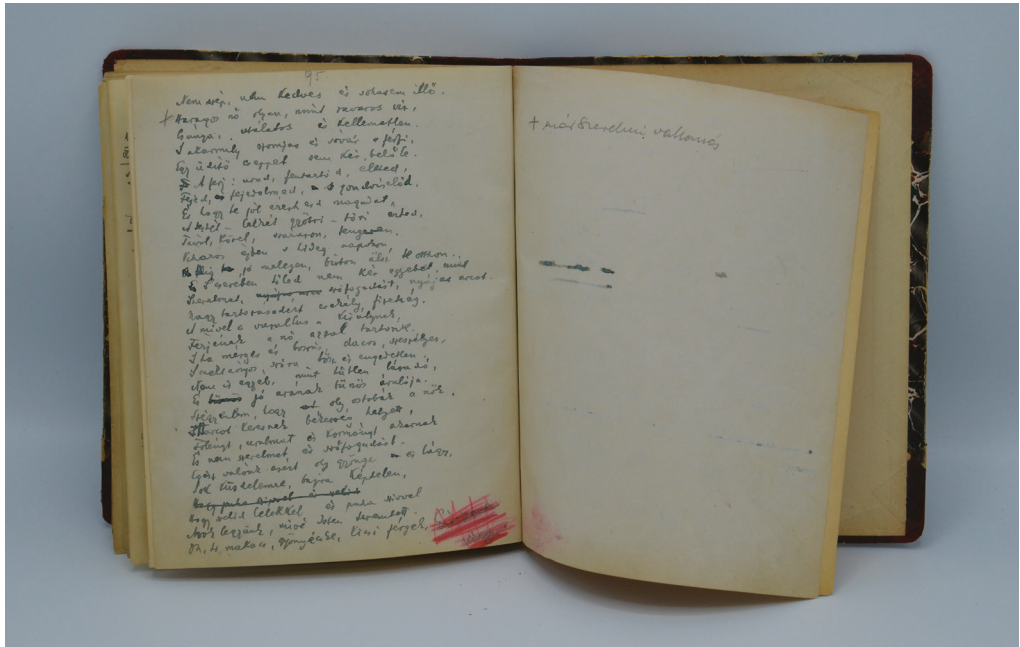 95.
Nem szép, nem kedves és sohasem illő.
+ Haragos nő olyan, mint zavaros víz,
Csunya, utálatos és kellemetlen.
S akármily szomjas és sóvár a férfi,
Egy üdítő cseppet sem kér belőle.
A férj: urad, fentartód, élted,
Fejed, fejedelmed, gondviselőd.
És hogy te jól érezhesd magadat,
A testét – lelkét gyötri – töri érted,
Távol, közel, szárazon, tengeren.
Viharos éjben s hideg napokon,
jó melegen, bízton ülsz itthon.
S cserében tőled nem kér egyebet, mint
Szerelmet, szófogadást, nyájas arcot.
Nagy tartozásodért csekély fizetség.
A mivel a vazallus a királynak,
Férjének a nő azzal tartozik.
S ha mérges és borús, dacos, szeszélyes,
S
Nem is egyéb, mint hűtlen lázadó,
És jó urának bűnös árulója.
Szégyenlem, hogy oly ostobák a nők.
Harcot keresnek békesség helyett,
Törvényt, uralmat és kormányt akarnak
És nem szerelmet és szófogadást.
Egész valónk azért oly gyönge és lágy,
Sok küzdelemre, bajra képtelen,
Hogy puha szivvel és
Hogy lélekkel és puha szivvel
Nők legyünk, mivé Isten teremtett.
Oh, ti makacs, gyöngécske, kicsi férgek,
+ már Szerelmi vallomás